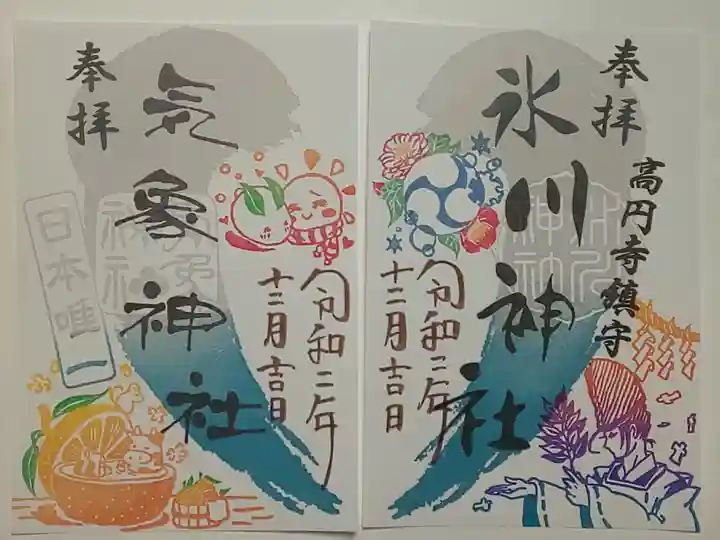 奉拝
高円寺鎮守
氷川神社
令和二年
十二月吉日
奉拝
気象神社
日本唯一
令和二年
十二月吉日